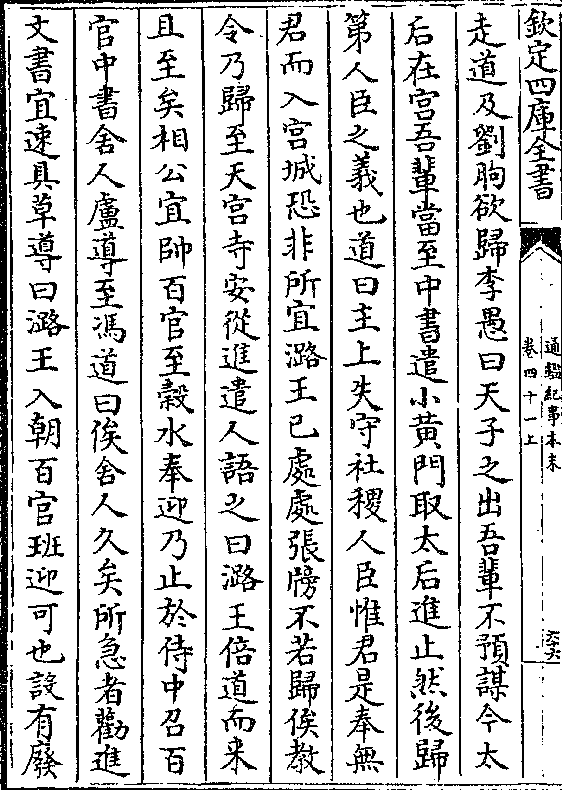 欽定四庫全書
通鑑紀事本末
卷四十一上
六六
走道及劉昫欲歸李愚曰天子之出吾輩不預謀今太
后在宫吾輩當至中書遣小黄門取太后進止然後歸
第人臣之義也道曰主上失守社稷人臣惟君是奉無
君而入宫城恐非所宜潞王已處處張牓不若歸俟教
令乃歸至天宫寺安從進遣人語之曰潞王倍道而来
且至矣相公宜帥百官至榖水奉迎乃止於侍中召百
官中書舍人盧導至馮道曰俟舍人久矣所急者勸進
文書宜速具草導曰潞王入朝百官班迎可也設有廢